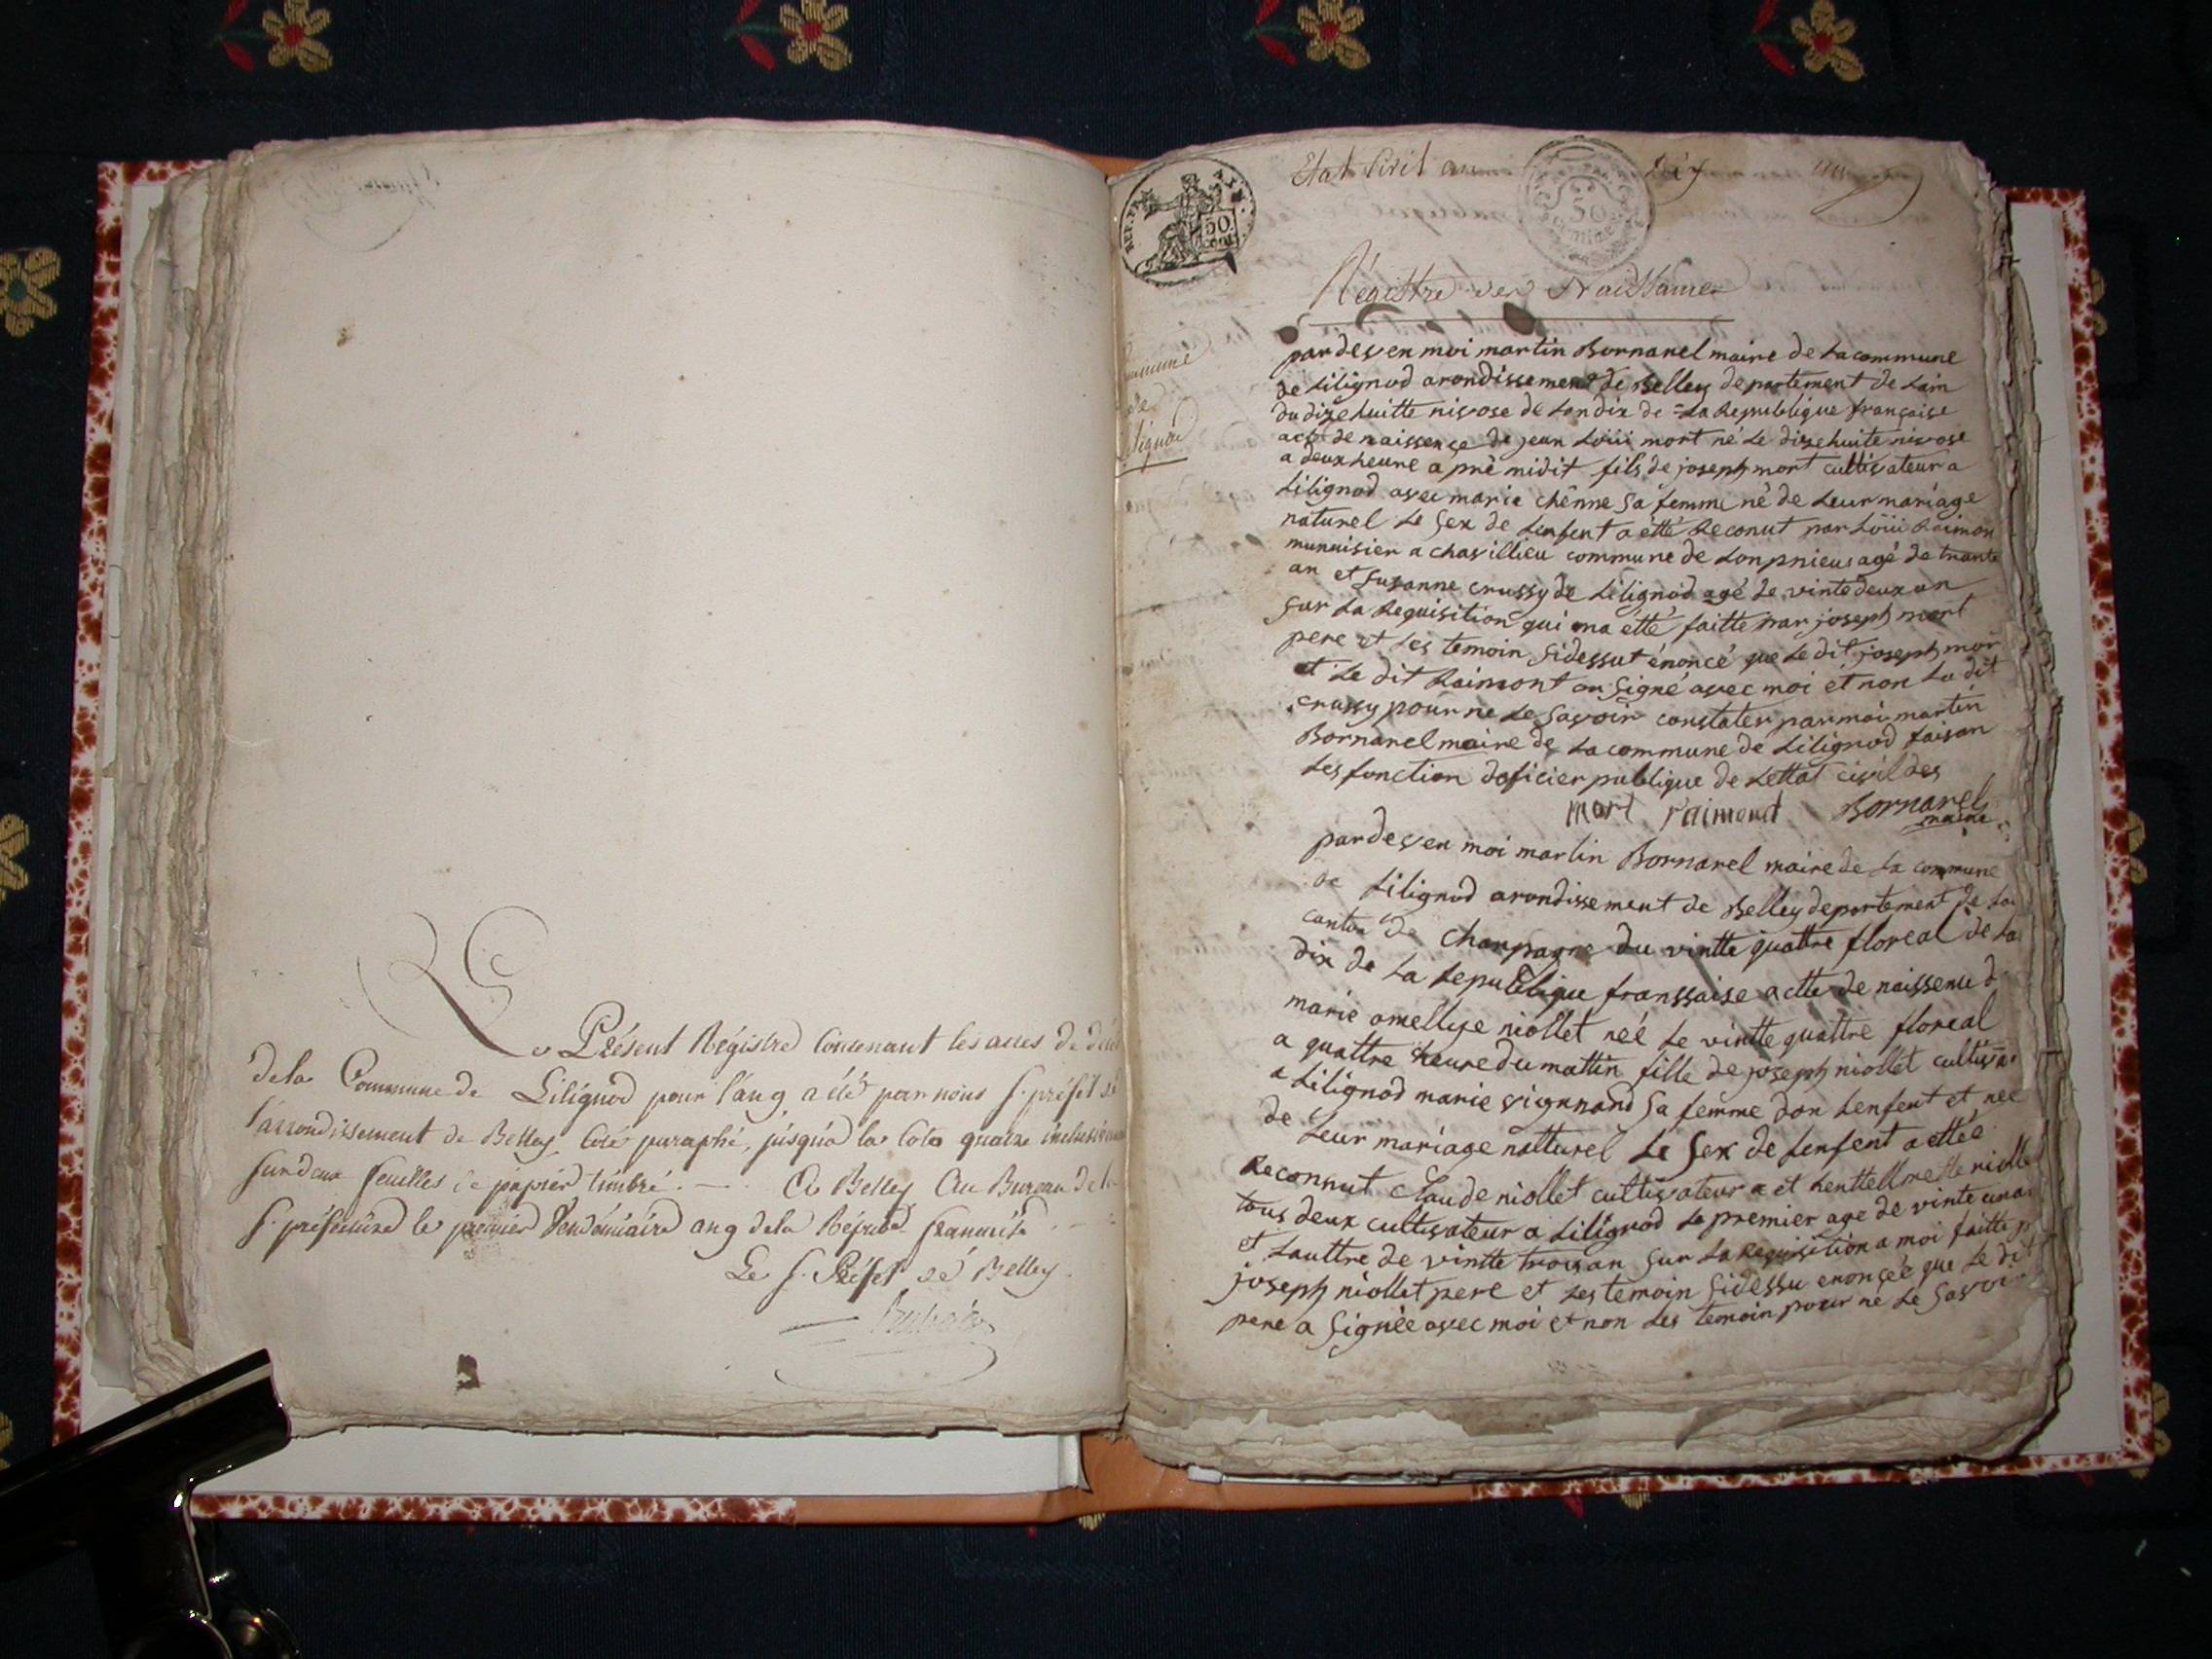 Le Présent Régistre Contenant les actes de
de la Commune de Lilignod pour l'an 9 a été par nous s. préfet de
l'arrondissement de Belley, Coté paraphé, jusqu'à la Cote quatre
sur deux feuilles de papier timbré. A Belley Au Bureau de la
s. préfecture le premier Vendémiaire an 9 de la Répub. française
Le s. Préfet de Belley
REP. FRA.
50
cent.
50
Etat Civil an dix
Régistre des Naissances
Commune
de
Lilignod
pardesen moi martin Bornarel maire de La commune
de Lilignod arondissement de Belley departement de Lain
du dize huitte nivose de Lan dix de La Republique française
act de naissençe de jean Loüi mort né Le dize huite nivose
a deux heure a prè midit fils de joseph mort cultivateur a
Lilignod avec marie chênne sa femme né de Leur mariage
naturel Le sex de Lenfent a étté Reconut par Loüi Raimon
munuisier a chavillieu commune de Lonpnieu agé de trante
an et susanne crussy de Lilignod agé de vinte deux an
sur La Requisition qui ma étté faitte par joseph mort
pere et Les temoin sidessut énoncé que Le dit joseph mor
et Le dit Raimont on signé avec moi et non La dit
crussy pour ne Le savoir constater par moi martin
Bornarel maire de La commune de Lilignod faisan
Les fonction doficier publique de Lettat civil des
mort raimond Bornarel
maire
pardesen moi martin Bornarel maire de La commune
de Lilignod arondissement de Belley departement de
canton de chanpagne du vintte quattre floreal de La
dix de La Republique franssaise actte de naissence d
marie omellye niollet neé Le vintte quattre floreal
a quattre heure du mattin fille de joseph niollet
a Lilignod marie vignnand sa femme don Lenfent et nee
de Leur mariage natturel Le sex de Lenfent a ettée
Reconnut Claude niollet cultivateur et
tous deux cultivateur a Lilignod Le premier age de vinte
et Lauttre de vintte trois an sur La Requisition a moi faitte
joseph niollet pere et Les temoin sidessu enonçée que Le dit
pere a signée avec moi et non Les temoin pour ne Le savoir